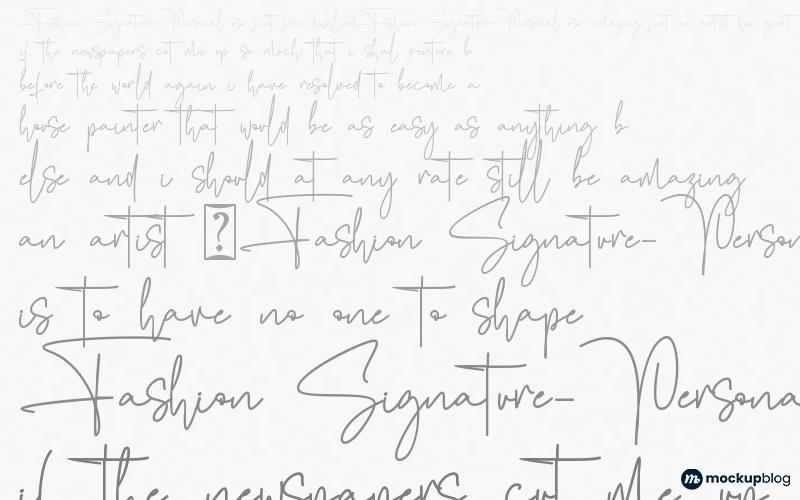 Fashion Signature- Personal use font free download Fashion Signature- Personal use amazing font an artist how great
if the newspapers cut me up so much that i shal venture b
before the world again i have resolved to become a
house painter that would be as easy as anything b
else and i should at any rate still be amazing
an artist ? Fashion Signature- Person
is to have no one to shape
Fashion Signature- Persona
if the newspapers cut me up
mockupblog